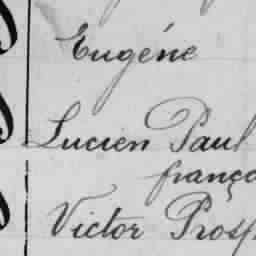 Eugéne
Lucien Paul
franço
Victor Prosp